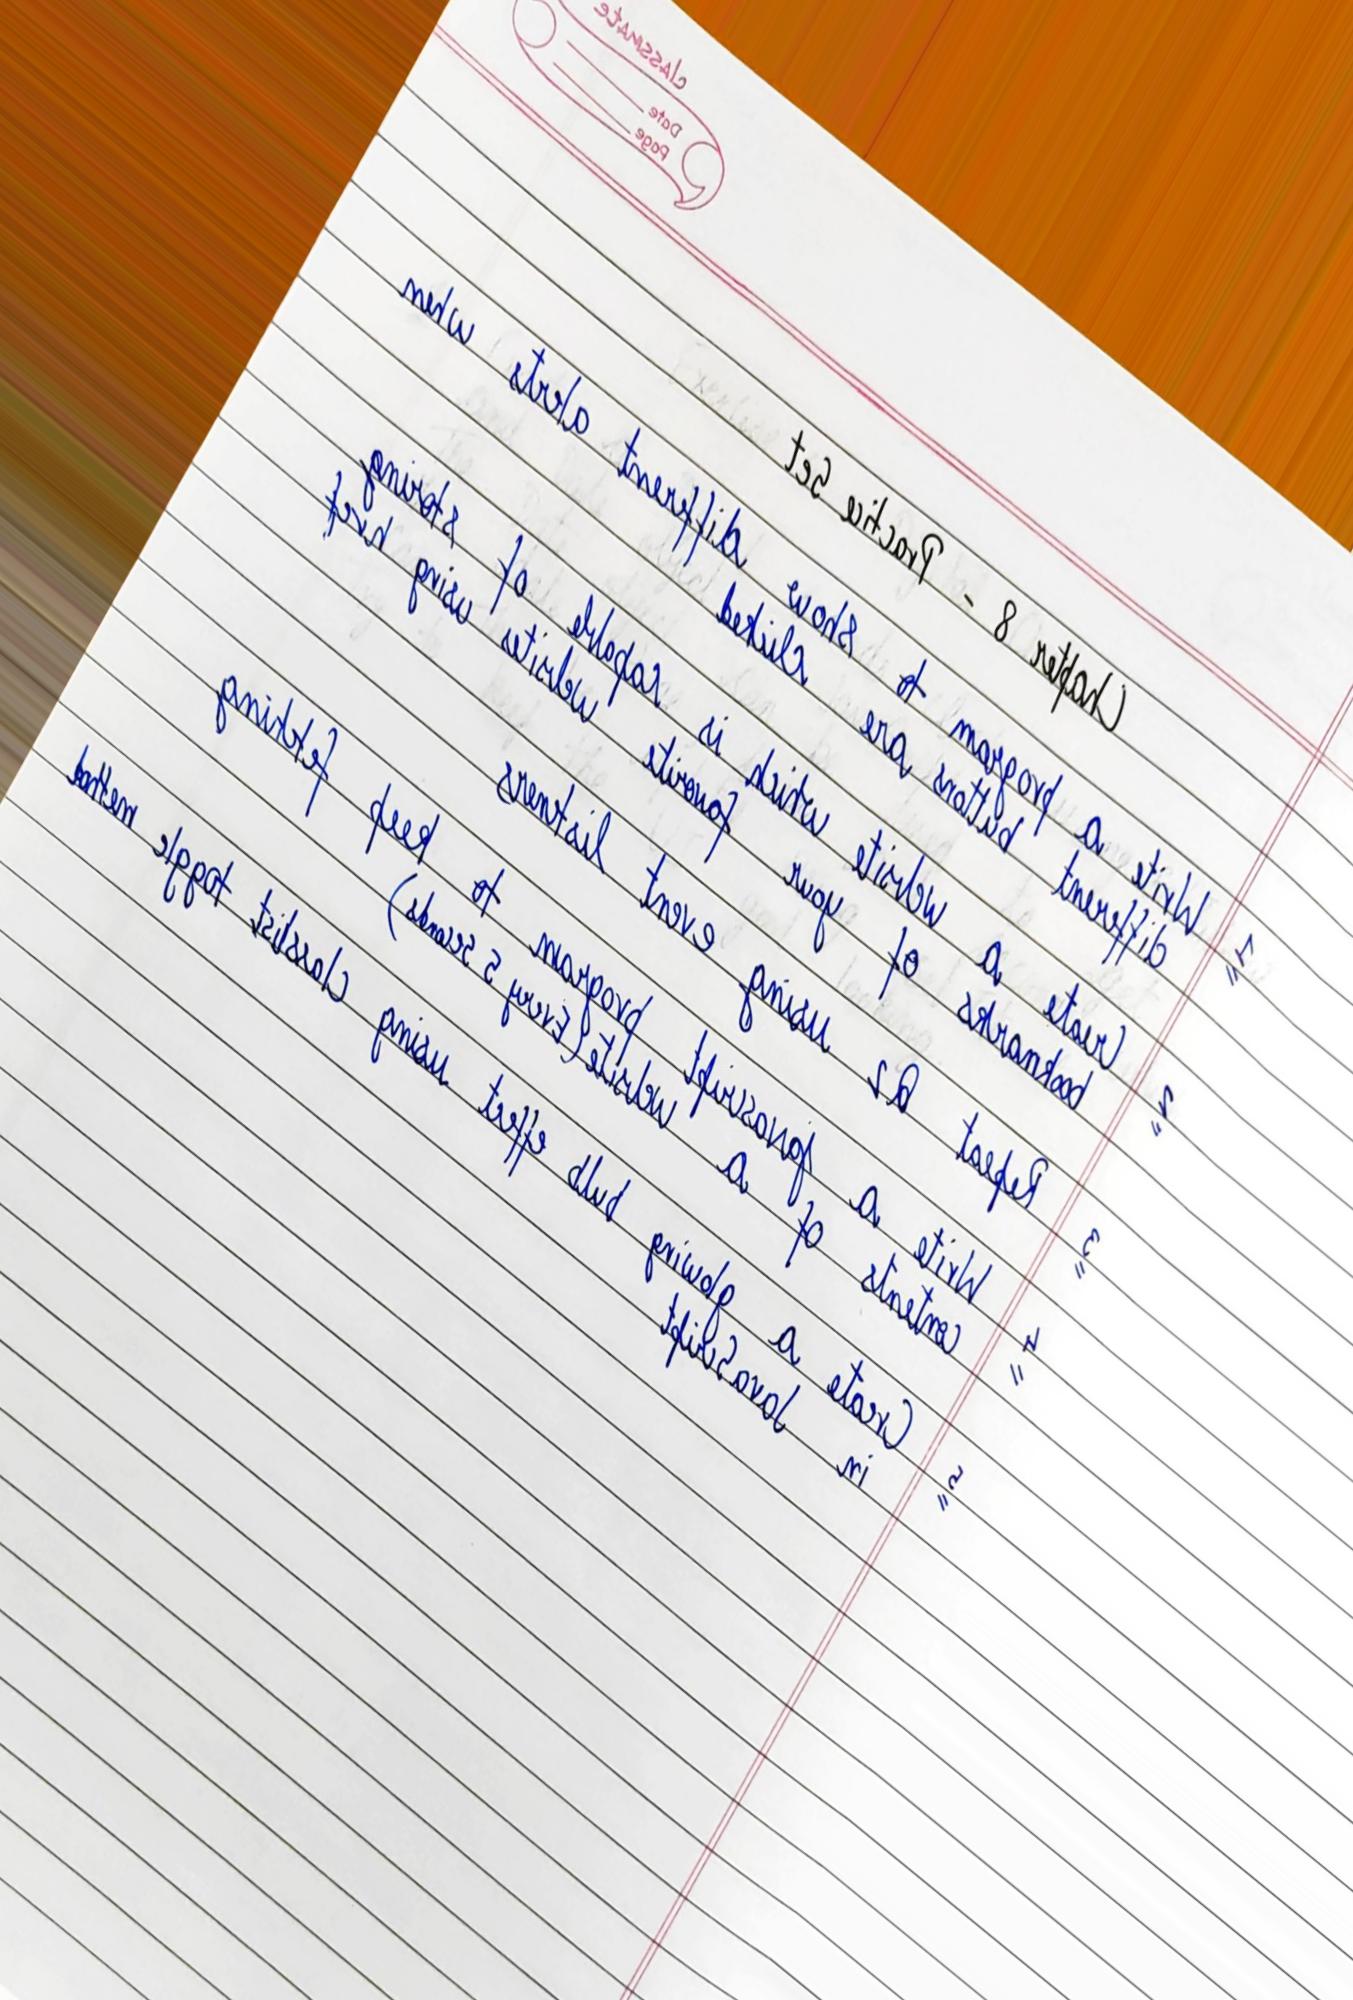 classmate
Date
Page
Chapter 8 - Practice Set
1" Write a program to show different alerts when
different buttons are clicked
2" Create a website which is capable of storing
bookmarks of your favorite websites using href
3" Repeat Q2 using event listners
4" Write a javascript program to keep fetching
contents of a website (Every 5 seconds)
5" Create a glowing bulb effect using classlist toggle method
in JavaScript